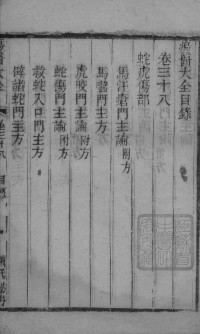 瘍醫大全目錄
卷三十八
蛇虎傷部
馬汗毒門主論附方
馬嚙門主方
虎咬門主論附方
蛇傷門主論附方
救蛇入口門主方
辟諸蛇門主方